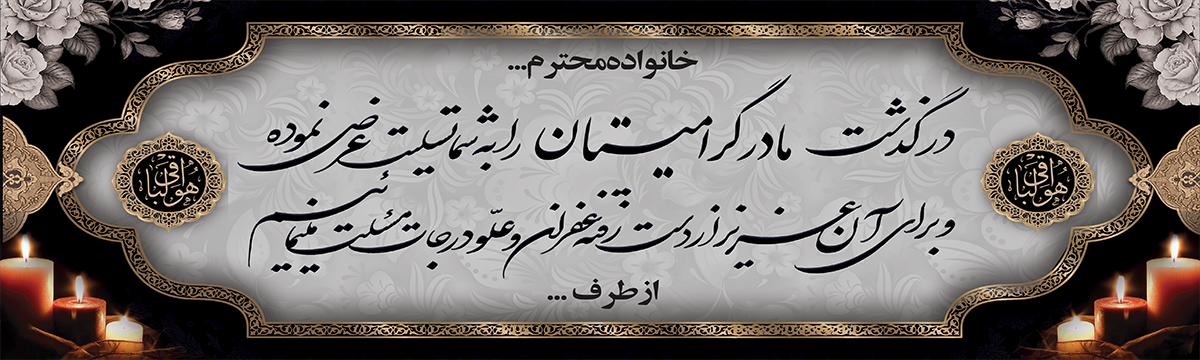 خانواده محترم...
درگذشت مادر گرامیتان را به شما تسلیت عرض نموده
و برای آن عزیز از دست رفته غفران و علو درجات مسئلت مینمائیم
از طرف ...
هو الباقی
هو الباقی